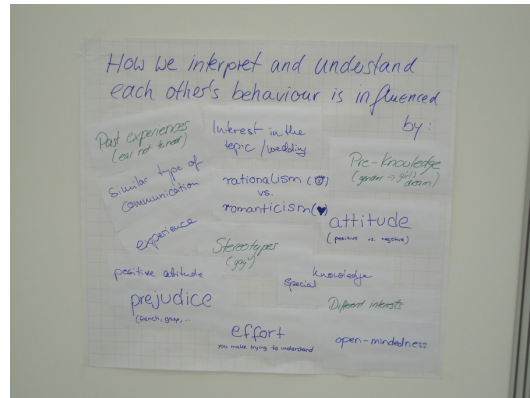 How we interpret and understand
each other's behaviour is influenced
by:
Past experiences
(ear not tuned)
Interest in the
topic / wedding
Pre-knowledge
similar type of
communication
rationalism
vs.
romanticism (♥)
attitude
(positive vs. negative)
experience
Stereotypes
positive attitude
knowledge
special
prejudice
Different interests
effort
you make trying to understand
open-mindedness